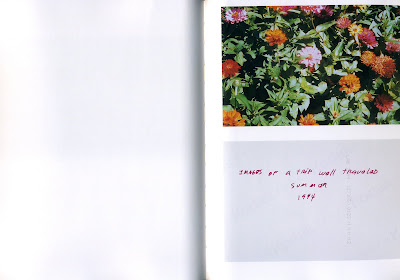 IMAGES OF A TRIP WELL TRAVELED
SUMMER
1994